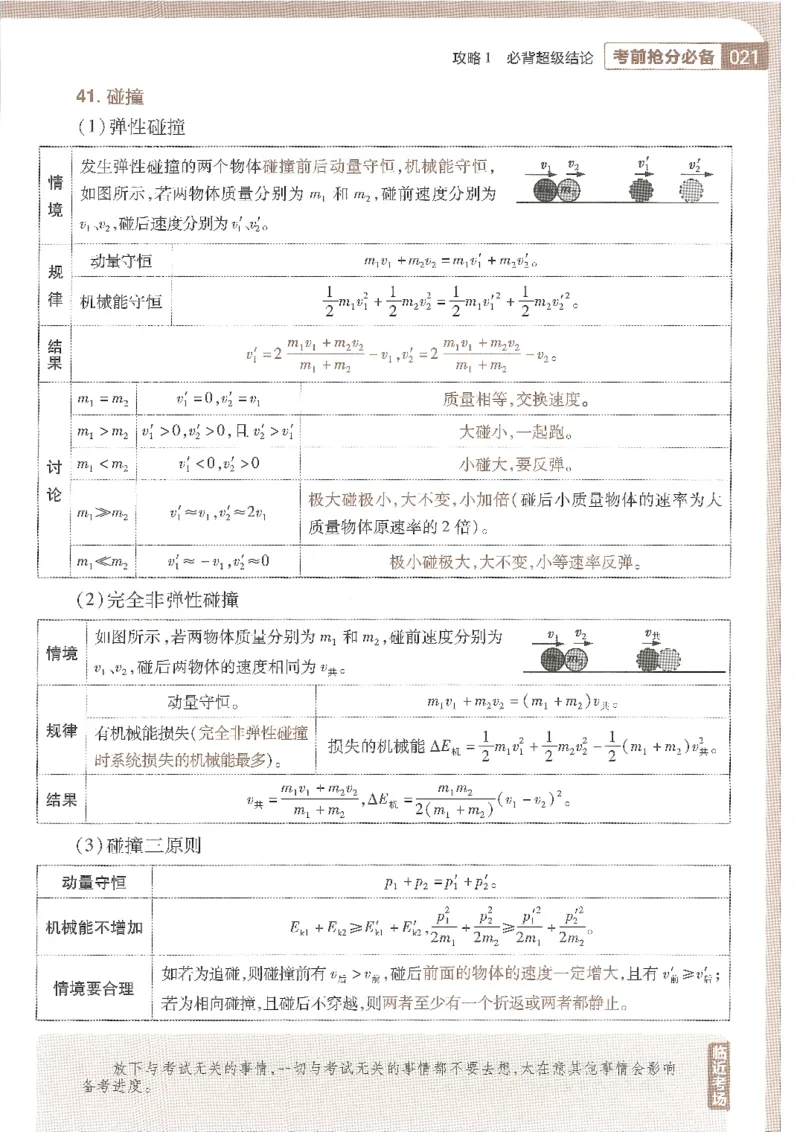 攻略1 必背超级结论 考前抢分必备 021
41. 碰撞
(1)弹性碰撞
情境
发生弹性碰撞的两个物体碰撞前后动量守恒,机械能守恒,
如图所示,若两物体质量分别为 m₁ 和 m₂,碰前速度分别为
v₁、v₂,碰后速度分别为v₁′、v₂′。
v₁ v₂ v₁′ v₂′
规律
动量守恒 m₁v₁ + m₂v₂ = m₁v₁′ + m₂v₂′。
机械能守恒 1/2 m₁v₁² + 1/2 m₂v₂² = 1/2 m₁v₁′² + 1/2 m₂v₂′²。
结果
v₁′ = 2 (m₁v₁ + m₂v₂)/(m₁ + m₂) − v₁, v₂′ = 2 (m₁v₁ + m₂v₂)/(m₁ + m₂) − v₂。
讨论
m₁ = m₂ v₁′ = 0, v₂′ = v₁ 质量相等,交换速度。
m₁ > m₂ v₁′ > 0, v₂′ > 0, 且 v₂′ > v₁′ 大碰小,一起跑。
m₁ < m₂ v₁′ < 0, v₂′ > 0 小碰大,要反弹。
m₁ ≫ m₂ v₁′ ≈ v₁, v₂′ ≈ 2v₁
极大碰极小,大不变,小加倍(碰后小质量物体的速率为大
质量物体原速率的2倍)。
m₁ ≪ m₂ v₁′ ≈ −v₁, v₂′ ≈ 0 极小碰极大,大不变,小等速率反弹。
(2)完全非弹性碰撞
情境
如图所示,若两物体质量分别为 m₁ 和 m₂,碰前速度分别为
v₁、v₂,碰后两物体的速度相同为 v共。
v₁ v₂ v共
m₂
规律
动量守恒。 m₁v₁ + m₂v₂ = (m₁ + m₂)v共。
有机械能损失(完全非弹性碰撞
时系统损失的机械能最多)。
损失的机械能 ΔE机 = 1/2 m₁v₁² + 1/2 m₂v₂² − 1/2 (m₁ + m₂)v共²。
结果
v共 = (m₁v₁ + m₂v₂)/(m₁ + m₂), ΔE机 = m₁m₂/2(m₁ + m₂) (v₁ − v₂)²。
(3)碰撞三原则
动量守恒 p₁ + p₂ = p₁′ + p₂′。
机械能不增加 Ek1 + Ek2 ≥ E′k1 + E′k2, p₁²/2m₁ + p₂²/2m₂ ≥ p₁′²/2m₁ + p₂′²/2m₂。
情境要合理
如若为追碰,则碰撞前有 v后 > v前,碰后前面的物体的速度一定增大,且有 v′前 ≥ v′后;
若为相向碰撞,且碰后不穿越,则两者至少有一个折返或两者都静止。
放下与考试无关的事情,一切与考试无关的事情都不要去想,太在意其他事情会影响
备考进度。
临近考场